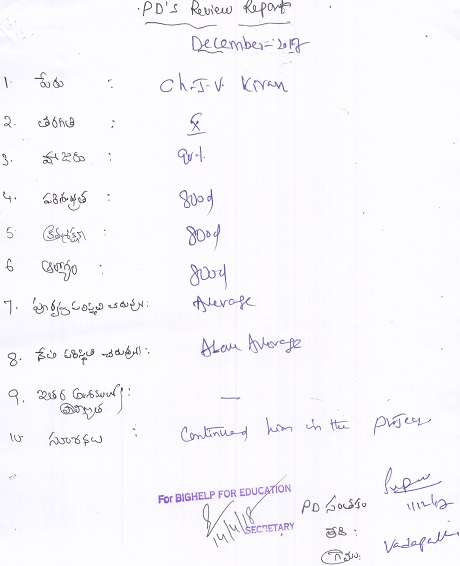 PD's Review Report
December-2017
1. పేరు : Ch. J. V. Kiran
2. తరగతి : X
3. హాజరు : 90%
4. పరిశుభ్రత : Good
5. క్రమశిక్షణ : Good
6. ఆరోగ్యం : Good
7. పూర్వపు పరిస్థితి చదువులో : Average
8. నేటి పరిస్థితి చదువులో : Above Average
9. ఇతర
—
10. సూచనలు : Continued him in the project
For BIGHELP FOR EDUCATION
14/4/18
SECRETARY
PD సంతకం
తేది : 1/12/17
గ్రామం: Vadapalli